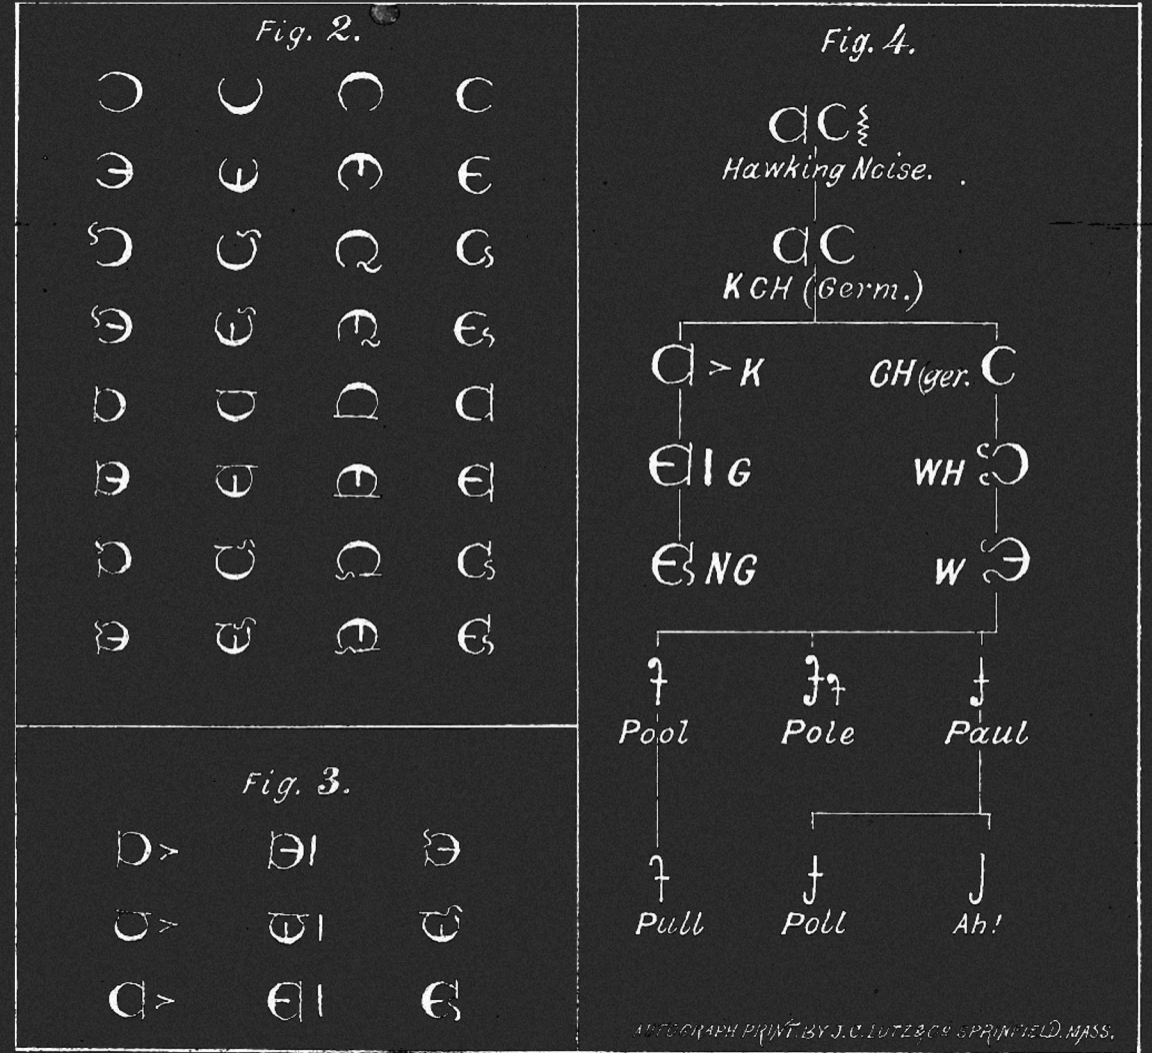 Fig. 2.
Fig. 3.
Fig. 4.
Hawking Noise.
K CH (Germ.)
> K
CH (ger.
G
WH
NG
W
Pool
Pole
Paul
Pull
Poll
Ah!
AUTOGRAPH PRINT BY J.C. LUTZ & CO SPRINFIELD. MASS.